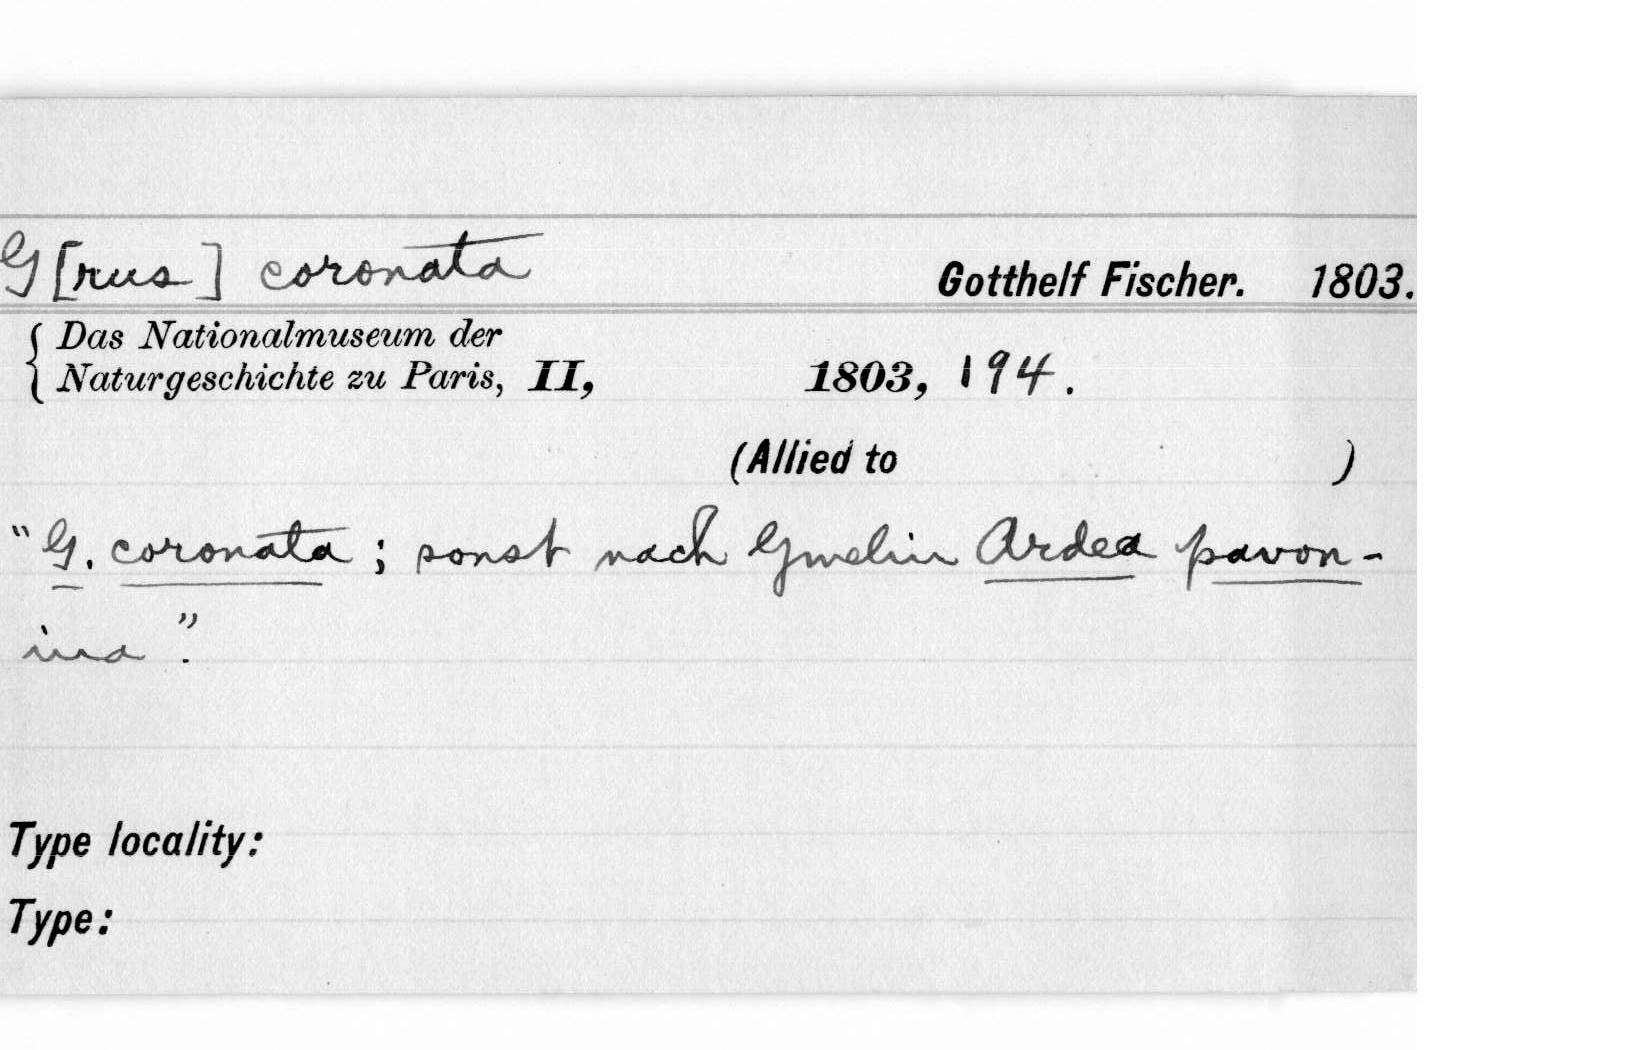 G[rus] coronata Gotthelf Fischer. 1803.
Das Nationalmuseum der
Naturgeschichte zu Paris, II, 1803, 194.
(Allied to )
"G. coronata; sonst nach Gmelin Ardea pavon-
ina".
Type locality:
Type: